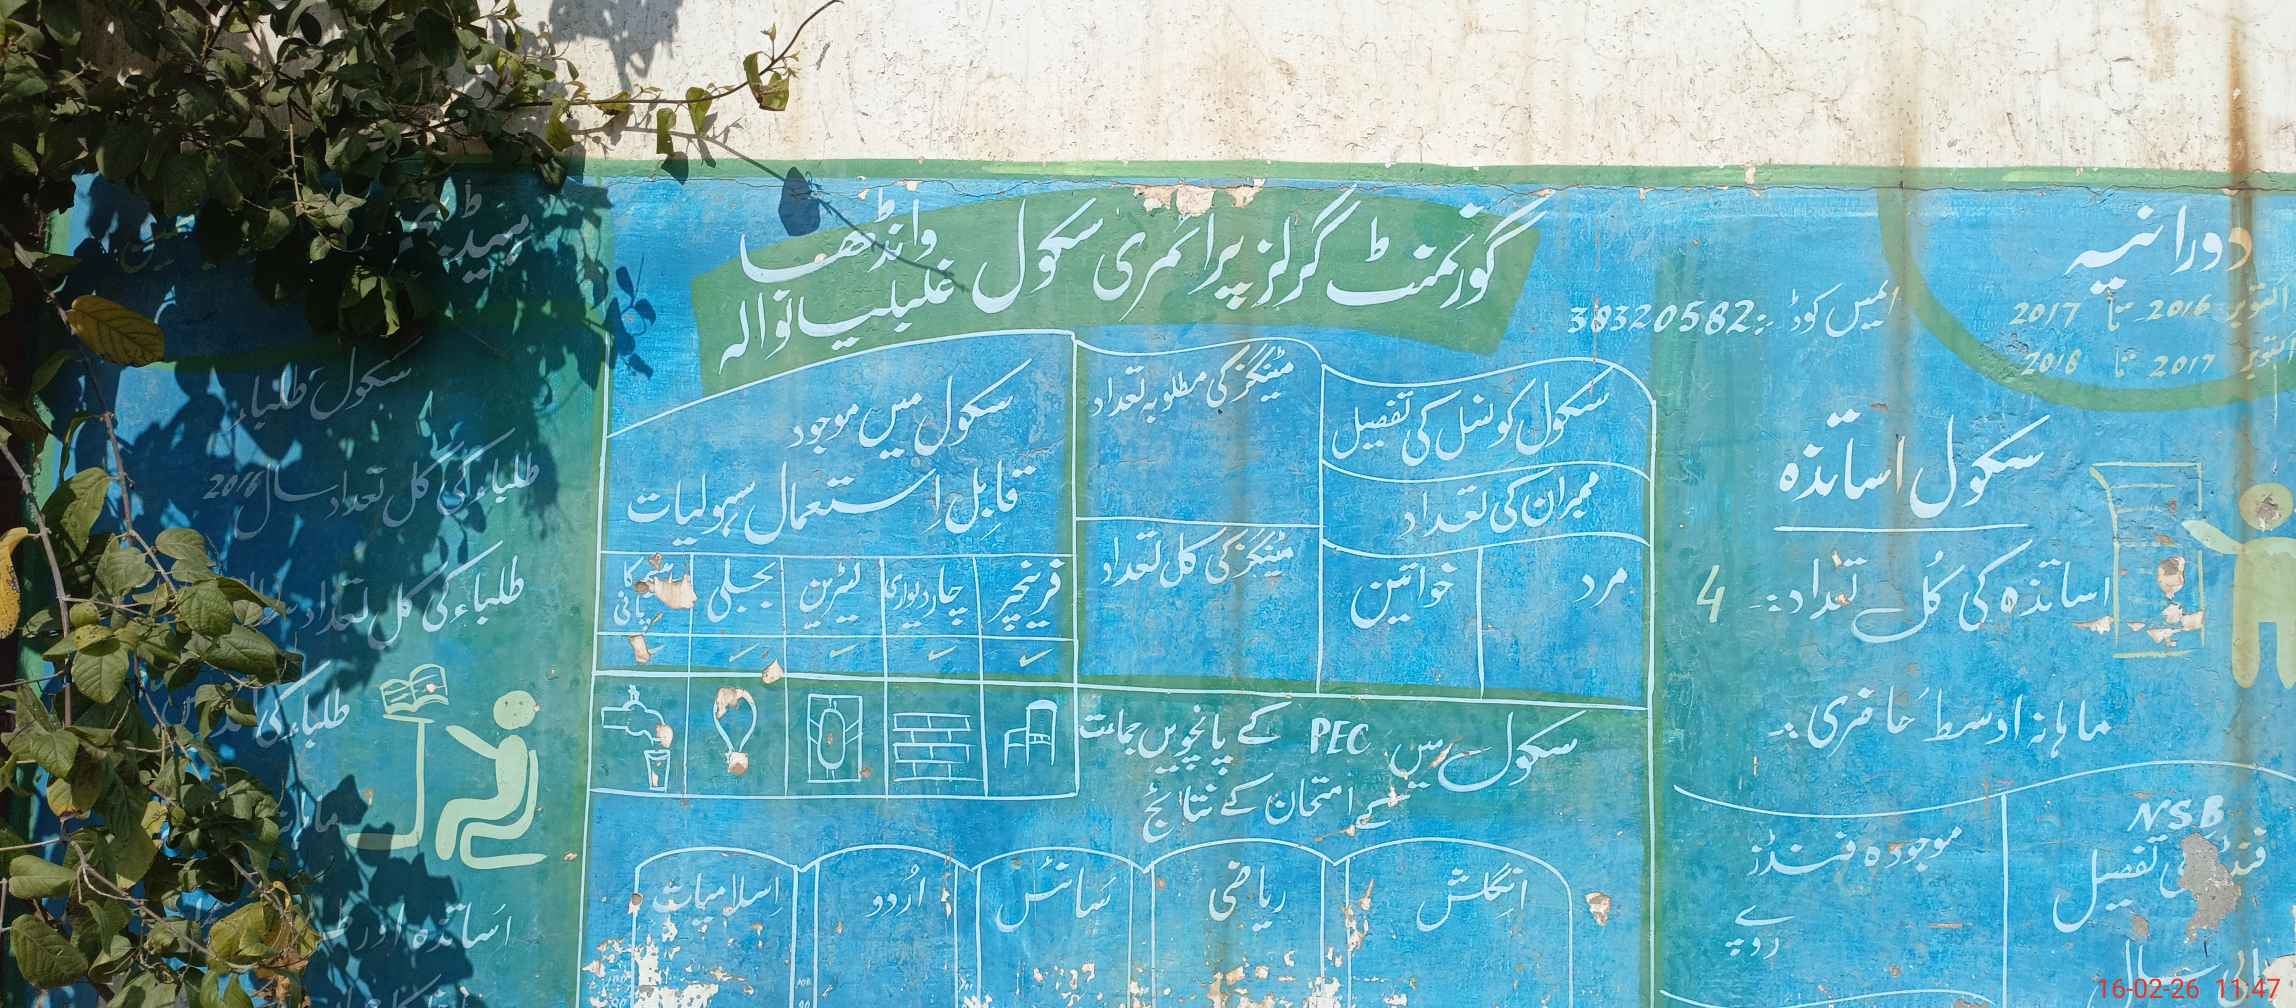 دورانیہ
اکتوبر 2016 تا 2017
اکتوبر 2017 تا 2018
سکول اساتذہ
اساتذہ کی کُل تعداد:۔ 4
ماہانہ اوسط حاضری :۔
NSB
فنڈ کی تفصیل
موجودہ فنڈز
روپے
گورنمنٹ گرلز پرائمری سکول وانڈھا
غلبلیانوالہ
ایمیس کوڈ :۔ 38320582
سکول کونسل کی تفصیل
ممبران کی تعداد
مرد
خواتین
میٹنگز کی مطلوبہ تعداد
میٹنگز کی کل تعداد
سکول میں موجود
قابلِ استعمال سہولیات
فرنیچر
چار دیواری
لیٹرین
بجلی
پانی
سکول میں PEC کے پانچویں جماعت
کے امتحان کے نتائج
انگلش
ریاضی
سائنس
اُردو
اسلامیات
ہیڈ
سکول طلباء
طلباء کی کل تعداد سال 2016
طلباء کی کل تعداد
طلباء کی
اساتذہ اور
16-02-26 11:47